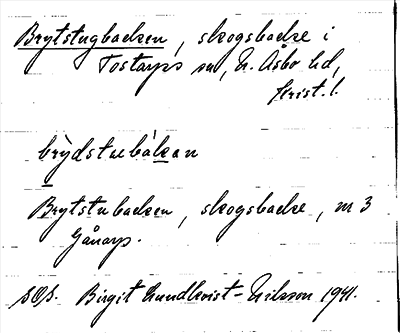 Brytstugbacken, skogsbacke i
Tostarps sn, N. Åsbo hd,
Krist. l.
brỳdstubákan
Brytstubacken, skogsbacke, m 3
Gånarp.
SOS. Birgit Lundkvist-Nilsson 1941.